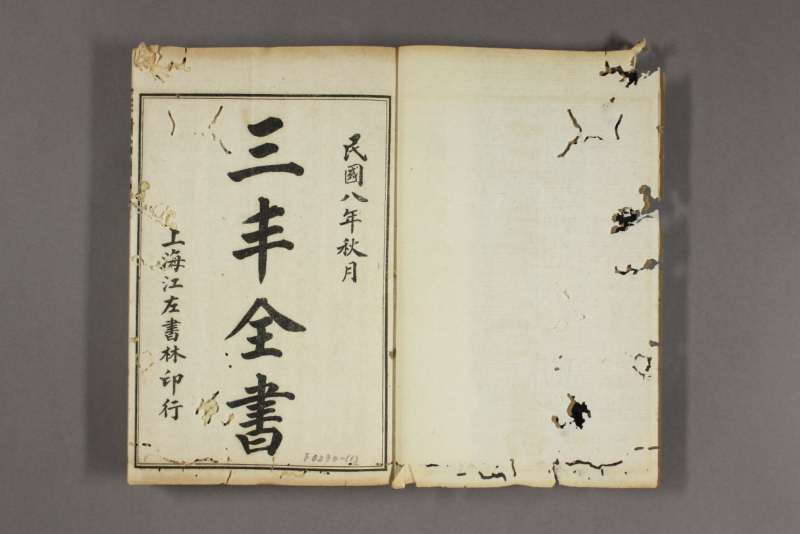 民國八年秋月
三丰全書
上海江左書林印行